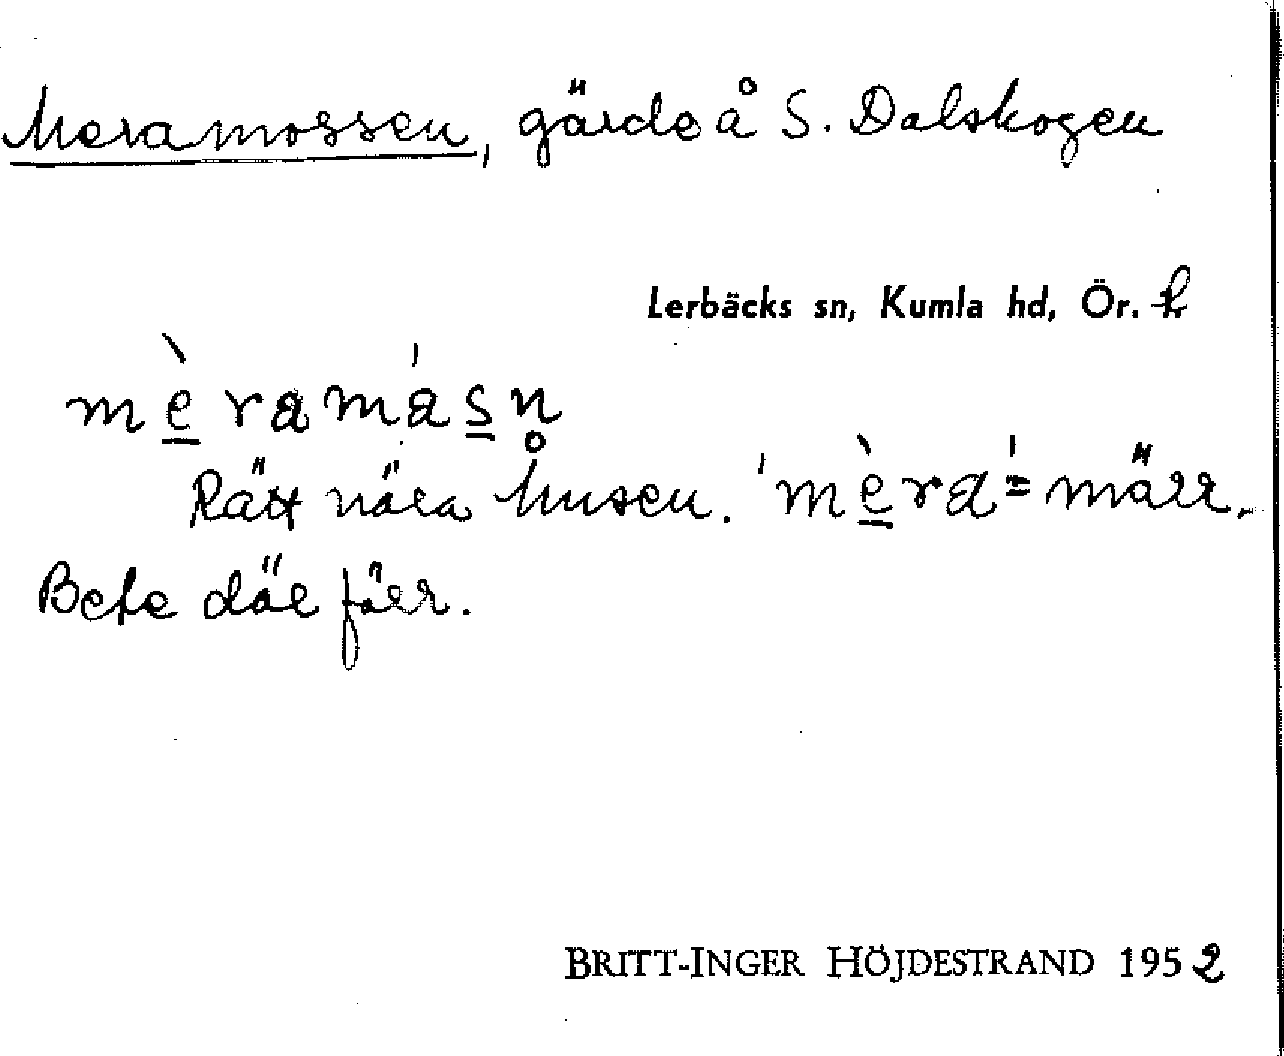 Meramossen, gärde å S. Dalskogen
Lerbäcks sn, Kumla hd, Ör. l
mèramásn̥
Rätt nära husen. 'mèrá' = märr.
Bete där förr.
BRITT-INGER HÖJDESTRAND 1952